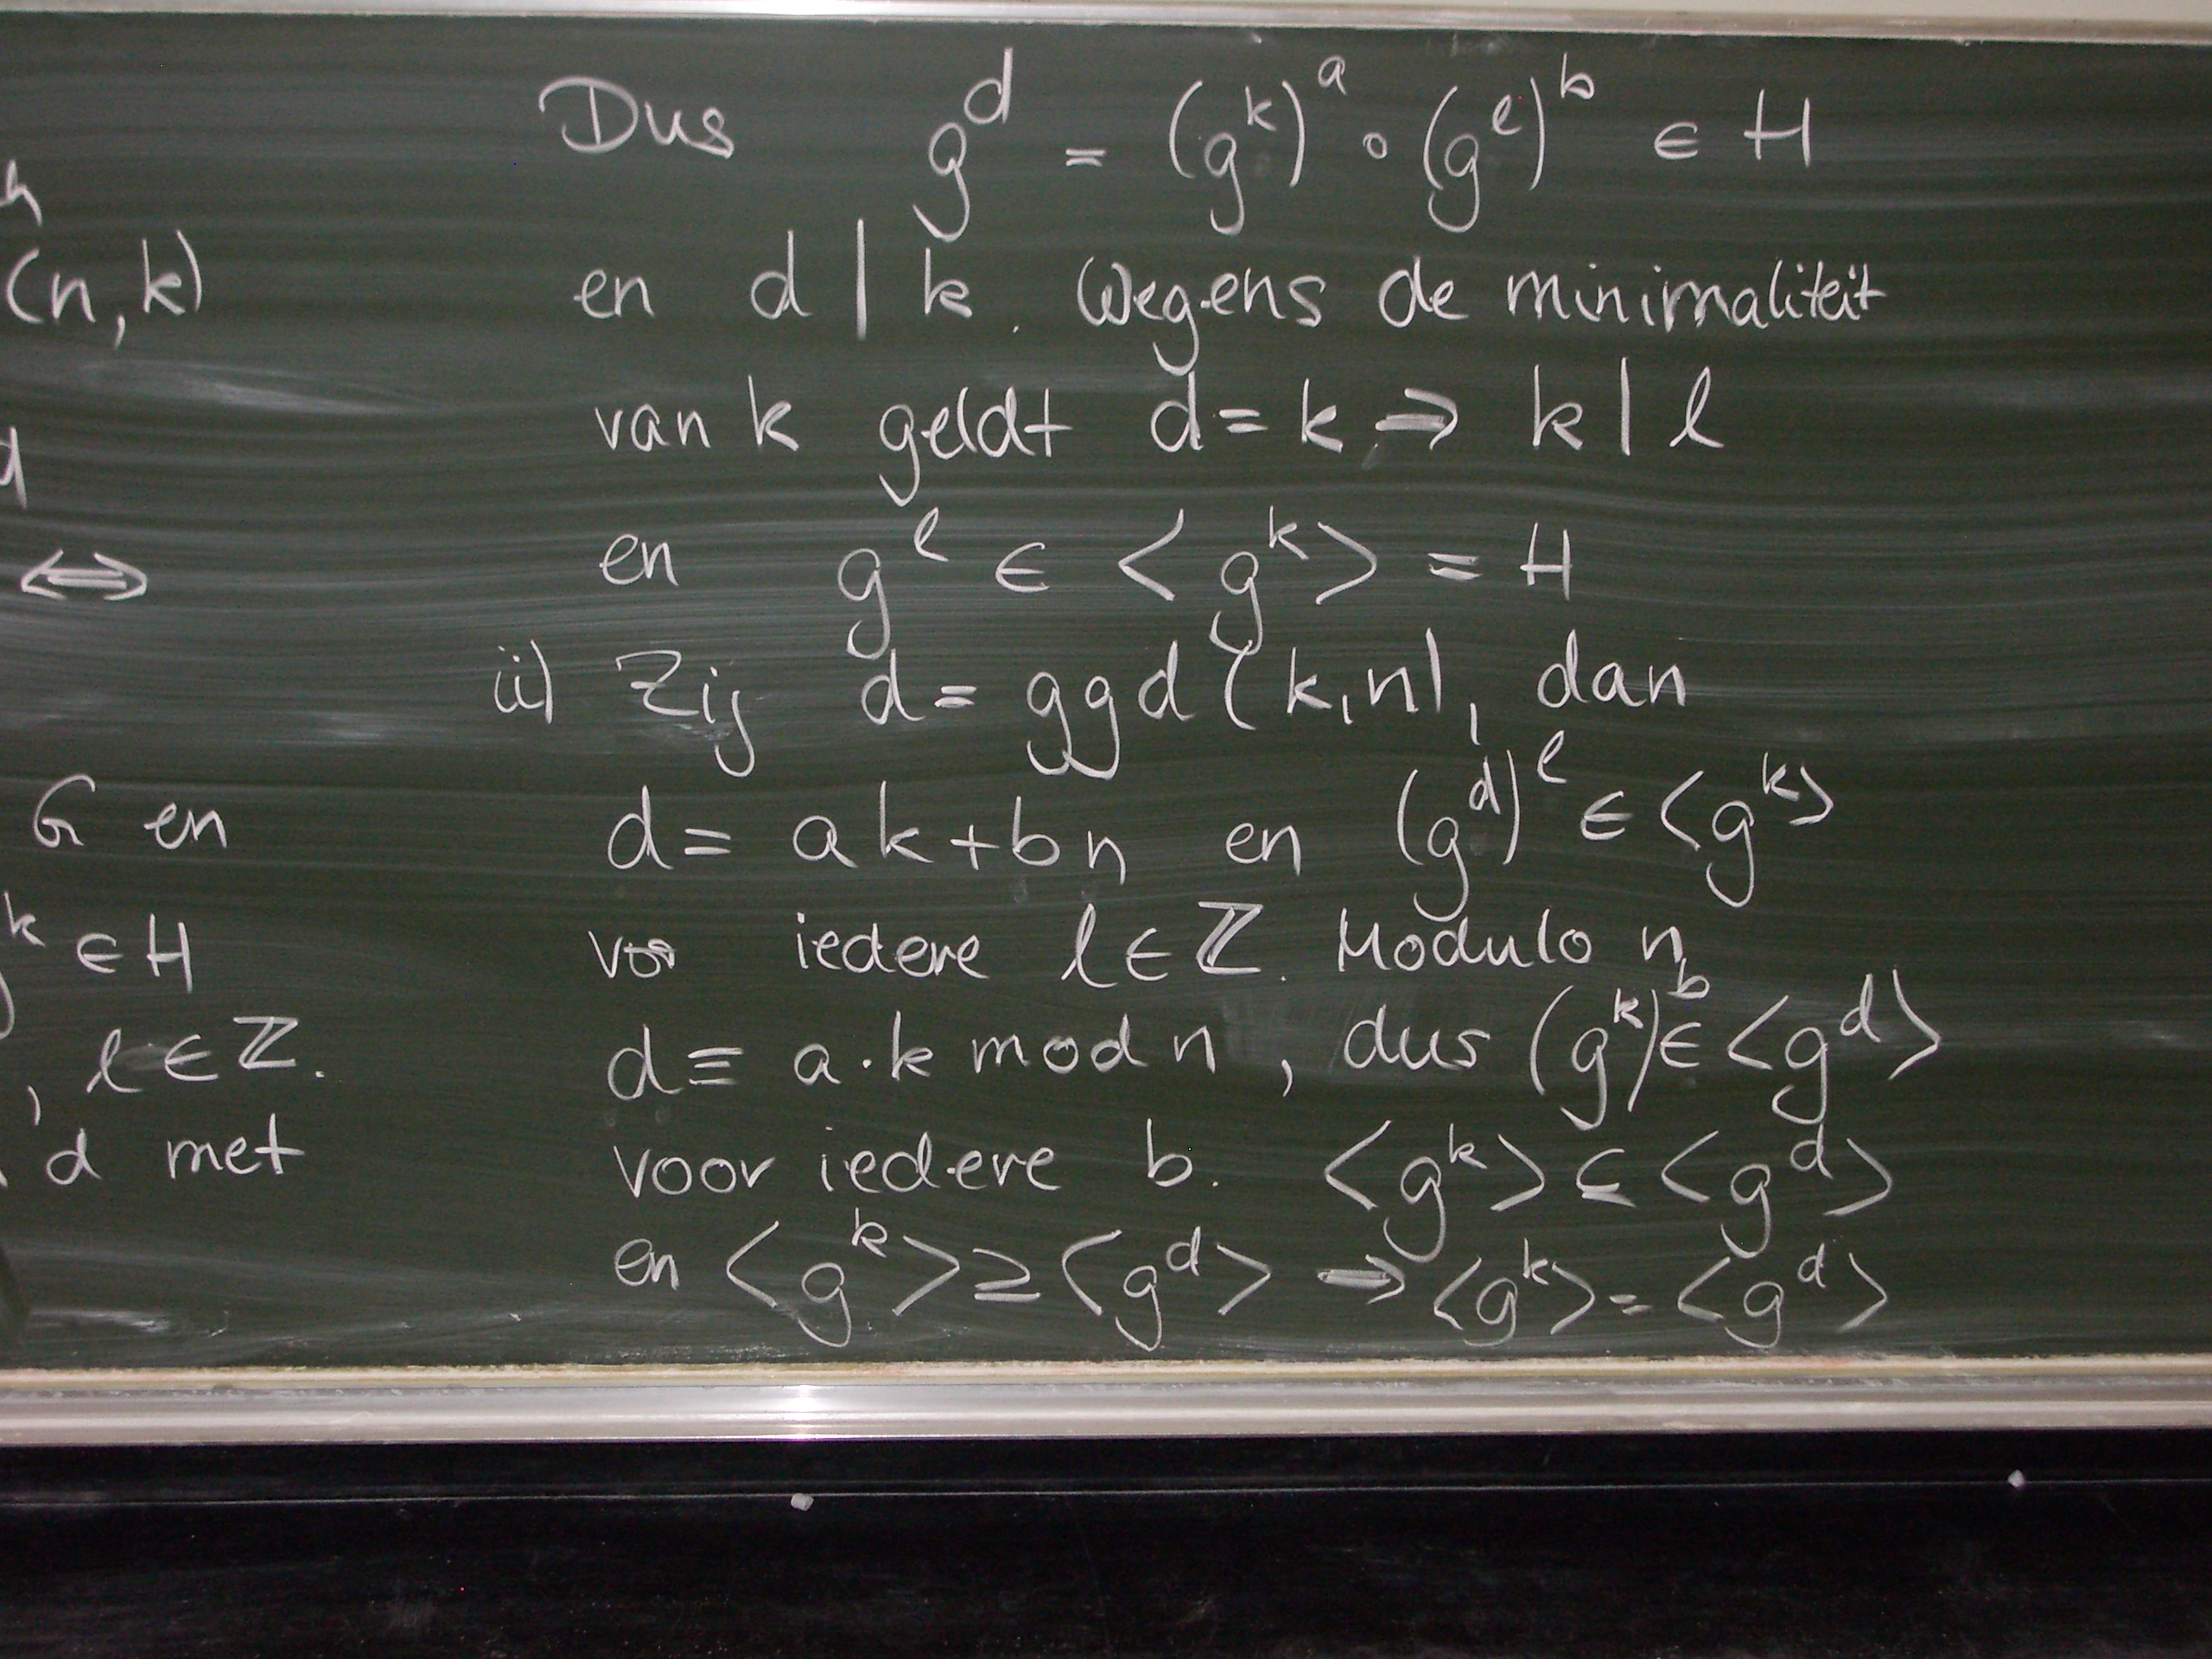 (n, k)
⇔
G en
k ∈ H
, l ∈ ℤ.
d met
Dus g^d = (g^k)^a ∘ (g^l)^b ∈ H
en d | k. Wegens de minimaliteit
van k geldt d = k ⇒ k | l
en g^l ∈ <g^k> = H
ii) Zij d = ggd (k,n), dan
d = ak + bn en (g^d)^l ∈ <g^k>
vor iedere l ∈ ℤ. Modulo n
d ≡ a·k mod n, dus (g^k)^b ∈ <g^d>
voor iedere b. <g^k> ⊆ <g^d>
en <g^k> ⊇ <g^d> ⇒ <g^k> = <g^d>